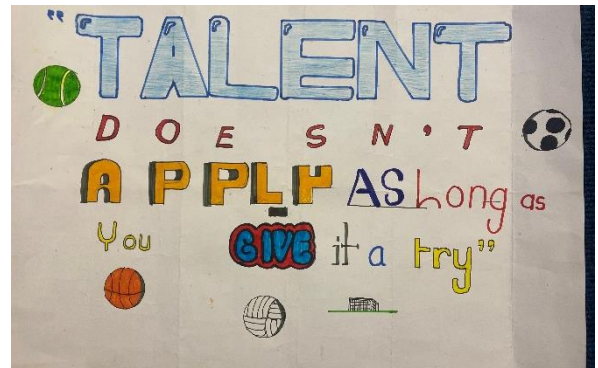 "TALENT
DOESN'T
APPLY AS Long as
You GIVE it a try"